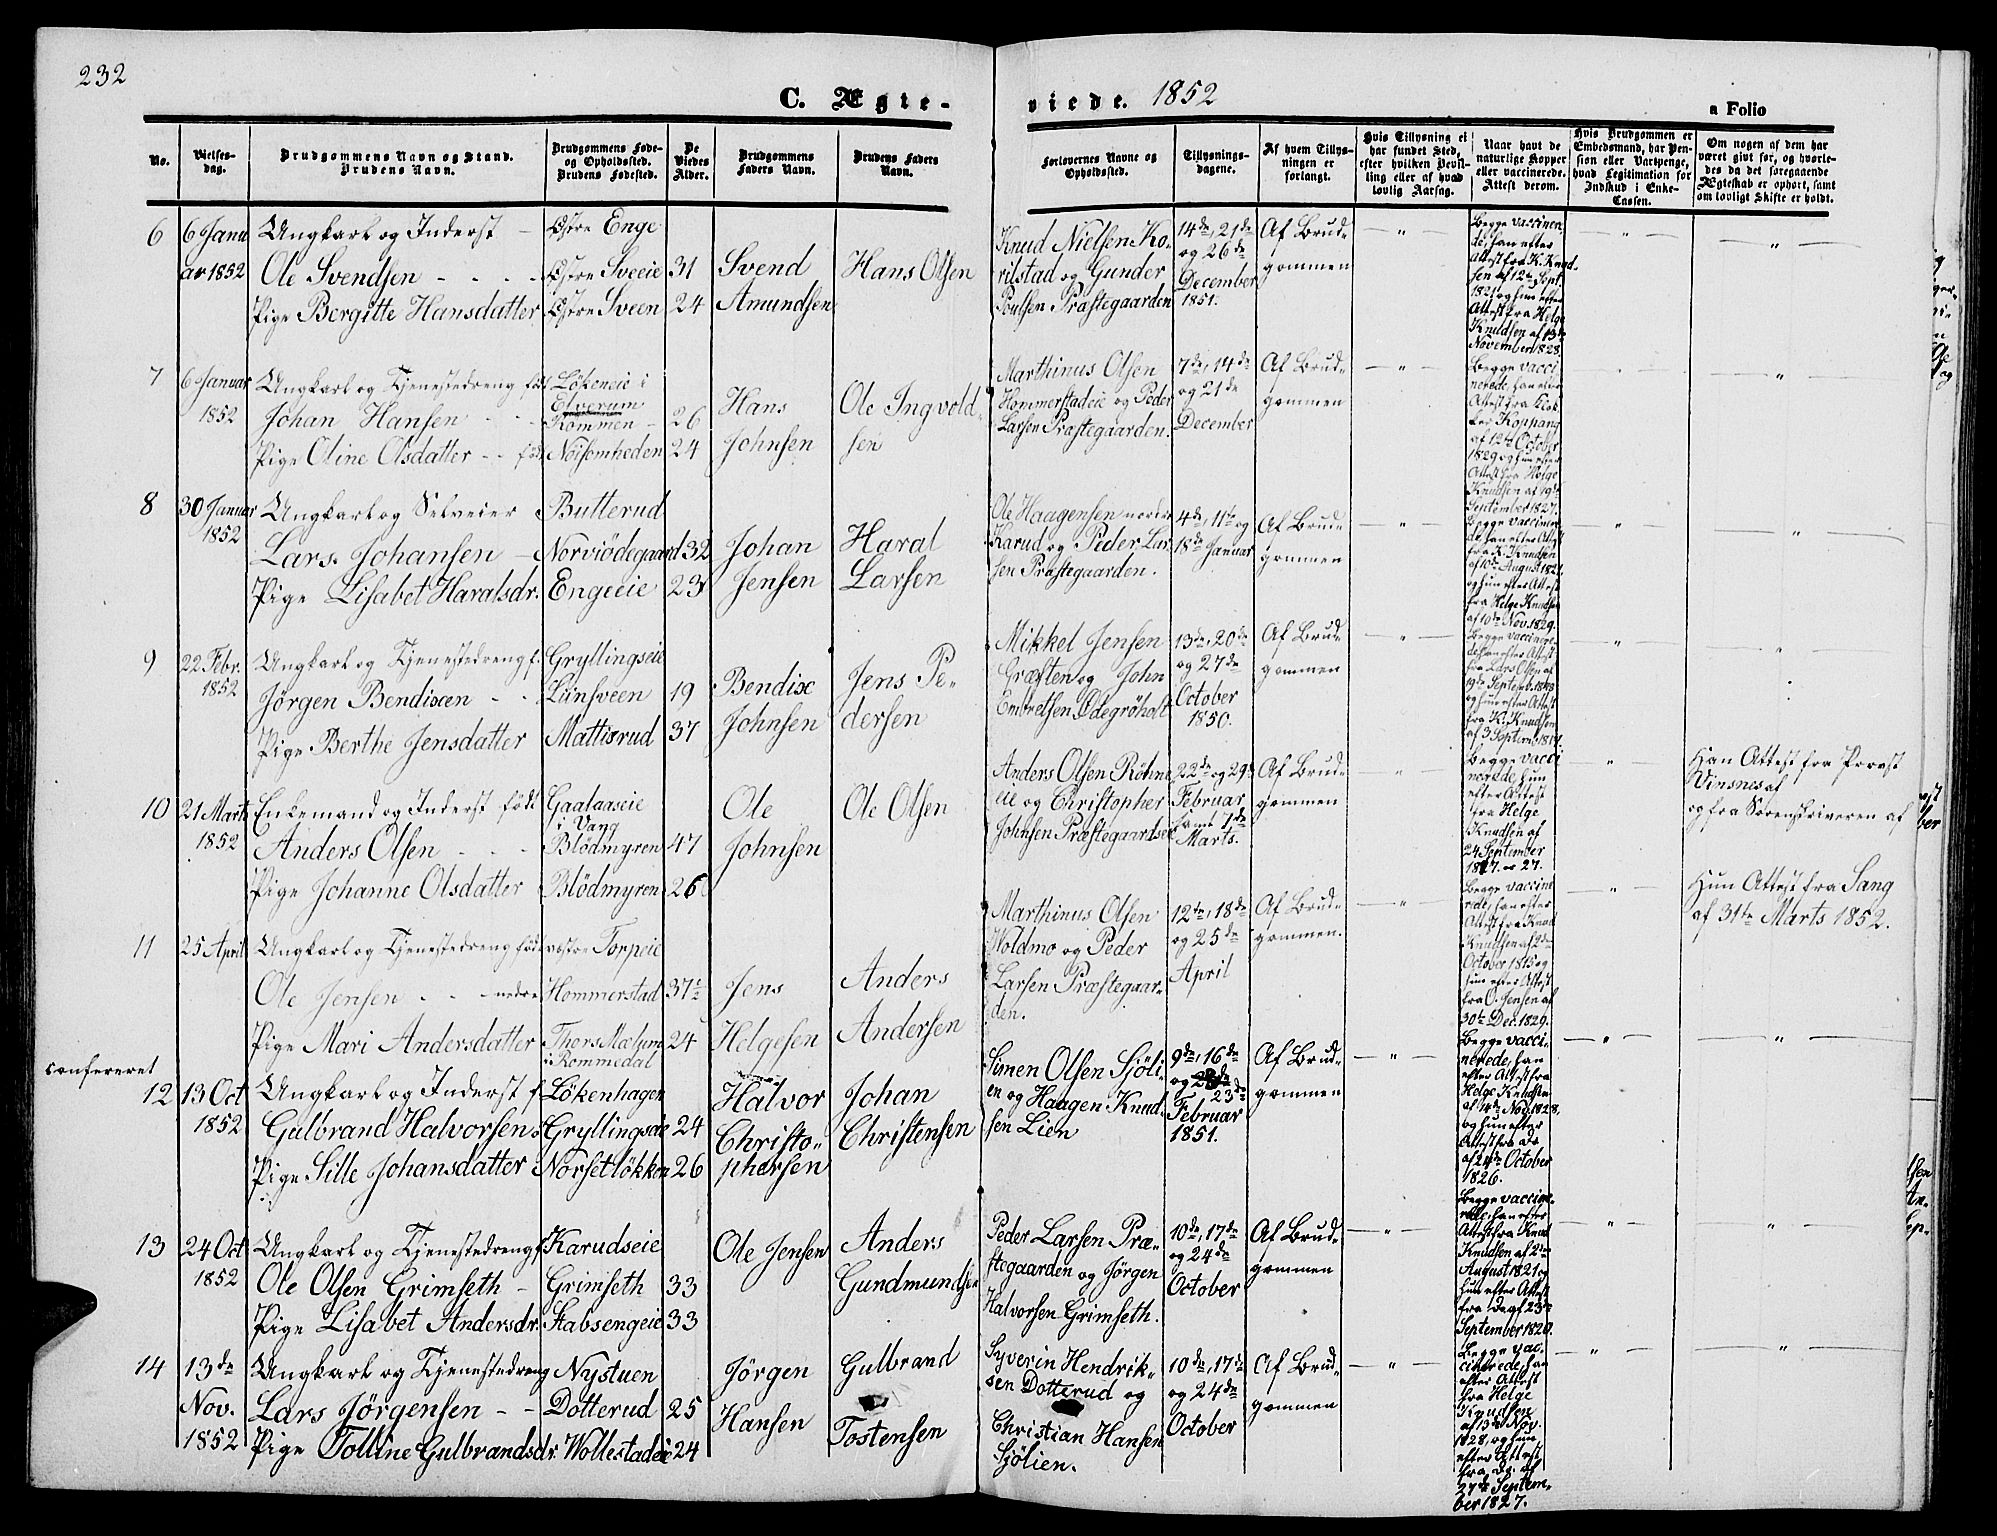 232
C. Ægteviede. 1852
a Folio
No.
Vielses-
dag.
Brudgommens Navn og Stand.
Brudens Navn.
Brudgommens Føde-
og Opholdssted.
Brudens Fødested.
De
Viedes
Alder.
Brudgommens
Faders Navn.
Brudens Faders
Navn.
Forlovernes Navne og
Opholdssted.
Tillysnings-
dagene.
Af hvem Tillys-
ningen er
forlangt.
Hvis Tillysning ei
har fundet Sted,
efter hvilken Bevil-
ling eller af hvad
lovlig Aarsag.
Naar havt de
naturlige Kopper
eller vaccinerede.
Attest derom.
Hvis Brudgommen er
Embedsmand, har Pen-
sion eller Vartpenge,
hvad Legitimation for
Indskud i Enke-
Cassen.
Om nogen af dem har
været givt før, og hvorle-
des da det foregaaende
Ægteskab er ophørt, samt
om lovligt Skifte er holdt.
6
6 Janu
ar 1852
Ungkarl og Inderst
Ole Svendsen
Pige Bergitte Hansdatter
Østre Enge
Østre Sveeie
Østre Sveen
31
24
Svend
Amundsen
Hans Olsen
Knud Nielsen Ko-
rilstad og Gunder
Poulsen Præstegaarden
14de, 21de
og 26de
December
1851.
Af Brud-
gommen
Begge vaccinere
de, han efter
Attest fra K. Knud-
sen af 12te Sept.
1821 og hun efter
Attest fra Helge
Knudsen af 13de
November 1828.
7
6 Januar
1852
Ungkarl og Tjenestedreng fød
Johan Hansen
Pige Oline Olsdatter fød
Lökeneie i
Elverum
Rommen
Nöisomheden
26
24
Hans
Johnsen
Ole Ingvold
sen
Marthinus Olsen
Hommerstadeie og Peder
Larsen Præstegaarden.
7de, 14de
og 21de
December
Af Brud-
gommen
Begge vacci
nerede, han efter
Attest fra Klok
ker Koppang
af 12te October
1829 og hun efter
Attest fra Helge
Knudsen af 19de
September 1827.
8
30 Januar
1852
Ungkarl og Selveier
Lars Johansen
Pige Lisabet Haralsdr.
Butterud
Norviödegaard
Engeeie
32
23
Johan
Jensen
Haral
Larsen
Ole Haagensen nordre
Karud og Peder Lar
sen Præstegaarden.
4de, 11te og
18de Januar
Af Brud-
gommen
Begge vaccinere
de, han efter Attest
fra K. Knudsen
af 10te August 1821
og hun efter Attest
fra Helge Knudsen
af 10te Nov. 1829.
9
22 Febr.
1852
Ungkarl og Tjenestedreng f.
Jørgen Bendixen
Pige Berthe Jensdatter
Gryllingseie
Lünsveen
Mattisrud
19
37
Bendix
Johnsen
Jens Pe-
dersen
Mikkel Jensen
Græsten og John
Embretsen Ødegröholt
13de, 20de
og 27de
October
1850.
Af Brud-
gommen
Begge vaccinere
de, han efter Attest
fra Lars Olsen af
19de September
og hun efter Attest
fra K. Knudsen
af 3 September
10
21 Marts
1852
Enkemand og Inderst født
Anders Olsen
Pige Johanne Olsdatter
Gaalaaseie
i Vang
Blödmyren
Blödmyren
47
26
Ole
Johnsen
Ole Olsen
Anders Olsen Röhne
eie og Christopher
Johnsen Præstegaardseie
22de og 29de
Februar
samt 7de
Marts.
Af Brud-
gommen
Begge vacci
nerede, hun
efter Attest
fra Helge
Knudsen af
24 September
1827. 27.
Han Attest fra Provst
Vinsnes af
og fra Sorenskriveren af
Hun Attest fra Sang
af 31te Marts 1852.
11
25 April
Ungkarl og Tjenestedreng født
Ole Jensen nedre
Pige Mari Andersdatter
vestre Torpeie
Hommerstad
Thors Mælum
i Rommedal
37½
24
Jens
Helgesen
Anders
Andersen
Marthinus Olsen
Woldmo og Peder
Larsen Præstegaar-
den.
12te, 18de
og 25de
April
Af Brud-
gommen.
Begge vaccine
rede, han efter
Attest fra Knud
Knudsen af 2den
October 1815 og
hun efter Attest
fra O. Jensen af
30te Dec. 1829.
confereret
12
13 Oct
1852
Ungkarl og Inderst f.
Gulbrand Halvorsen
Pige Sille Johansdatter
Lökenhagen
Gryllingseie
Norsetlökken
24
26
Halvor
Christo-
phersen
Johan
Christensen
Simen Olsen Sjöli-
en og Haagen Knud-
sen Lien
9de, 16de
og 23de
23de
Februar
1851.
Af Brud-
gommen
Begge vacci-
nerede, han
efter Attest fra
Helge Knudsen
af 14te Nov. 1828,
og hun efter
Attest fra do
af 24de October
1826.
13
24 Oct
1852
Ungkarl og Tjenestedreng f.
Ole Olsen Grimseth
Pige Lisabet Andersdr.
Karudseie
Grimseth
Stabsengeie
33
33
Ole Jensen
Anders
Gundmundsen
Peder Larsen Præ-
stegaarden og Jörgen
Halvorsen Grimseth.
10de, 17de
og 24de
October
Af Brud-
gommen
Begge vaccine-
rede, han efter
Attest fra Knud
Knudsen af 2den
August 1821 og
hun efter Attest
fra do af 23de
September 1820.
14
13de
Nov.
1852
Ungkarl og Tjenestedreng
Lars Jörgensen
Pige Tolline Gulbrandsdr.
Nystuen
Dotterud
Wollestadeie
25
24
Jörgen
Hansen
Gulbrand
Tostensen
Syverin Hendrik-
sen Dotterud og
Christian Hansen
Sjölien.
10de, 17de
og 24de
October
Af Brud-
gommen
Begge vac-
cinerede, han
efter Attest
fra Helge
Knudsen
af 13de Nov.
1828, og hun
efter Attest
fra do. af
27de Septem-
ber 1827.